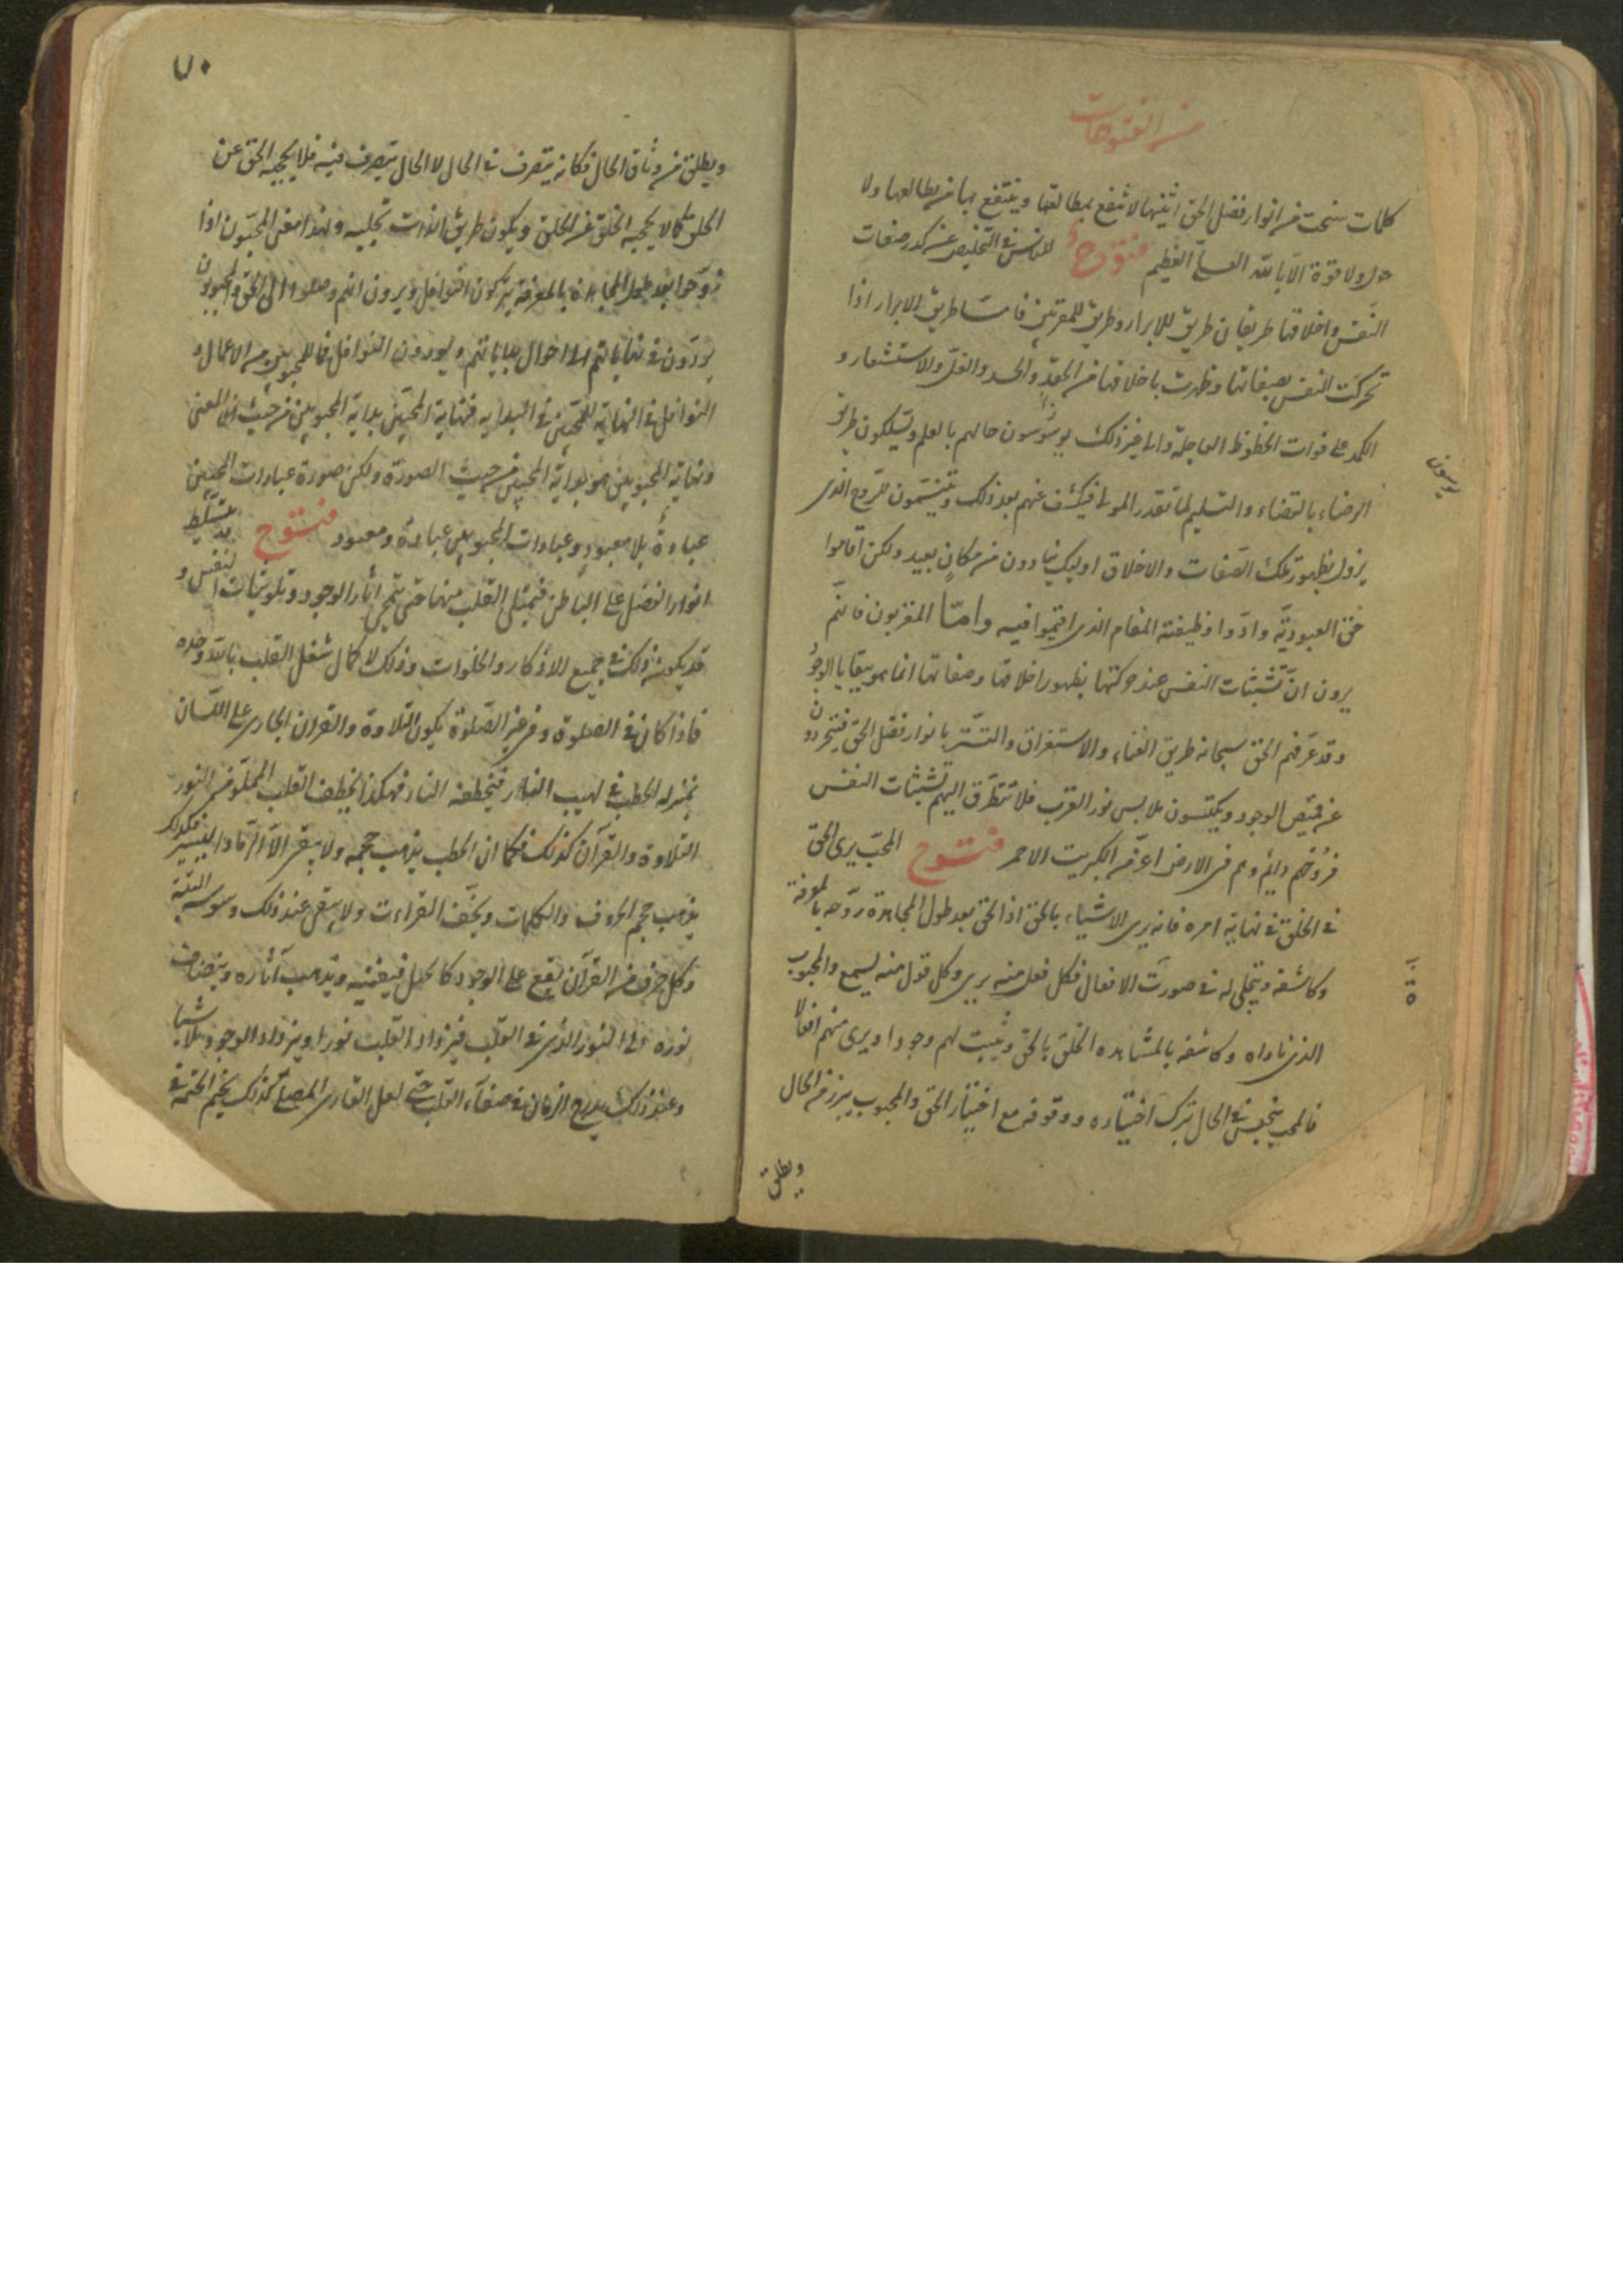 من الفتوحات
كلمات سنحت من انوار فضل الحق اثبتها لانتفع بمطالعتها وينتفع بها من يطالعها ولا
حول ولا قوة الا بالله العلى العظيم فتوح للناس فى التخليص عن كدر صفات
النفس واخلاقها طريقان طريق للابرار وطريق للمقربين فاما طريق الابرار اذا
تحركت النفس بصفاتها وظهرت باخلاقها من الحقد والحسد والغل والاستشعار و
الكمد على فوات الحظوظ العاجلة والى غير ذلك يوسوسون حالهم بالعلم ويسلكون طريق
يوسون
الرضاء بالقضاء والتسليم لما تقدر المولى فيكشف عنهم بعد ذلك ويتنسمون للروح الذى
يزول بظهور تلك الصفات والاخلاق اوليك ينادون من مكان بعيد ولكن اقاموا
حق العبودية وادوا وظيفة المقام الذى اقيموا فيه واما المقربون فانهم
يرون ان تشبثات النفس عند حركتها بظهور اخلاقها وصفاتها انما هو ببقايا الوجود
وقد عرفهم الحق سبحانه طريق الفناء والاستغراق والتستر بانوار فضل الحق فيتجردون
عن قميص الوجود ويكتسون ملابس نور القرب فلا تتطرق اليهم تشبثات النفس
فروحهم دايم وهم فى الارض اعز من الكبريت الاحمر فتوح المحب يرى الحق
فى الخلق فى نهاية امره فانه يرى الاشياء بالحق اذ الحق بعد طول المجاهدة روحه بالمعرفة
وكاشفه ويتجلى له فى صورت الافعال فكل فعل منه يرى وكل قول منه يسمع والمحبوب
الذى ناداه وكاشفه بالمشاهده الخلق بالحق ويثبت لهم وجودا ويرى منهم افعالا
فالمحب ينحبس فى الحال بترك اختياره ووقوفه مع اختيار الحق والمحبوب يبرز من الحال
ويطلق
٧٠
ويطلق من وثاق الحال فكانه يتصرف فى الحال لا الحال يتصرف فيه فلا يحجبه الحق عن
الخلق كما لا يحجبه الخلق عن الحق ويكون طريق الذات تجليه ولهذا معنى المحبون اذا
روحوا بعد طول المجاهدة بالمعرفة يتركون النوافل ويرون انهم وصلوا الى الحق والمحبوبون
يردون فى نهاياتهم الى احوال بداياتهم ويوردون النوافل فاللمحبوبين من الاعمال و
النوافل فى النهاية للمحبين فى البدايه فنهاية المحبين بداية المحبوبين من حيث المعنى
ونهاية المحبوبين هو بداية المحبين من حيث الصورة ولكن صورة عبادات المحبين
عبادة بلا معبود وعبادات المحبوبين عبادة ومعبود فتوح قد يتسلط
انوار الفضل على الباطن فيمتلى القلب منها حتى يتمحى اثار الوجود وتلوينات النفس و
قد يكون ذلك فى جميع الاذكار والخلوات وذلك لكمال شغل القلب بالله وحده
فاذا كان فى الصلوة وفى غير الصلوة يكون التلاوة والقران الجارى على اللسان
بمنزله الحطب فى لهيب النار فيخطفه النار فهكذا يخطف القلب المملو من النور
التلاوة والقرآن كذلك فكما ان الحطب يذهب حجمه ولا يبقى الا الرماد اليسير فكذلك
يذهب حجم الحروف والكلمات ويخف القراءت ولا يبقى عند ذلك وسوسه البتة
وكل حرف من القرآن يقع على الوجود كالحبل فيفنيه ويذهب آثاره وينضاف
نوره الى النور الذى فى القلب فيزداد القلب نورا ويزداد الوجود تلاشيا
وعند ذلك يدرج الزمان فى صفاء القلب حتى لعل القارى المصلى كذلك يختم الختمة فى